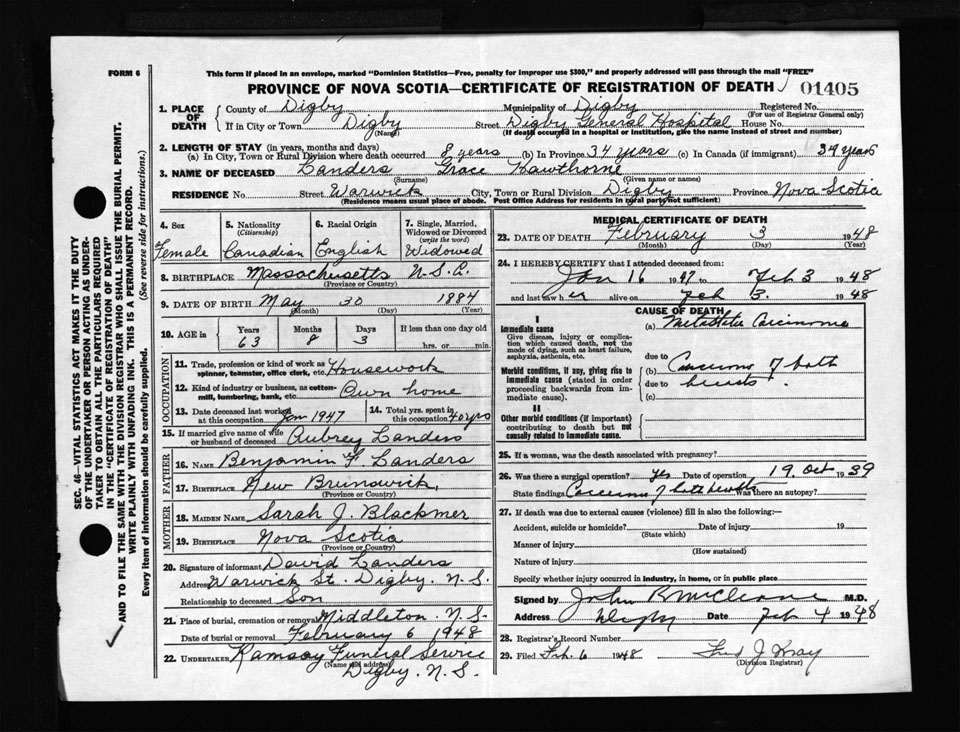 FORM 6
This form if placed in an envelope, marked "Dominion Statistics—Free, penalty for improper use $300," and properly addressed will pass through the mail "FREE"
PROVINCE OF NOVA SCOTIA—CERTIFICATE OF REGISTRATION OF DEATH 01405
1. PLACE OF DEATH County of Digby Municipality of Digby Registered No.
(For use of Registrar General only)
If in City or Town Digby Street Digby General Hospital House No.
(Name) (If death occurred in a hospital or institution, give the name instead of street and number)
2. LENGTH OF STAY (in years, months and days)
(a) In City, Town or Rural Division where death occurred 8 years (b) In Province 34 years (c) In Canada (if immigrant) 39 years
3. NAME OF DECEASED Landers Grace Hawthorne
(Surname) (Given name or names)
RESIDENCE No. Street Warwick City, Town or Rural Division Digby Province Nova Scotia
(Residence means usual place of abode. Post Office Address for residents in rural parts not sufficient)
4. Sex 5. Nationality (Citizenship) 6. Racial Origin 7. Single, Married, Widowed or Divorced (write the word)
Female Canadian English Widowed
8. BIRTHPLACE Massachusetts
(Province or Country)
9. DATE OF BIRTH May 30 1884
(Month) (Day) (Year)
10. AGE in Years Months Days If less than one day old
63 8 3 hrs. or min.
OCCUPATION
11. Trade, profession or kind of work as spinner, teamster, office clerk, etc. Housework
12. Kind of industry or business, as cotton-mill, lumbering, bank, etc. Own home
13. Date deceased last worked at this occupation Jan 1947 14. Total yrs. spent in this occupation 40 yrs
15. If married give name of wife or husband of deceased Aubrey Landers
FATHER
16. NAME Benjamin F. Landers
17. BIRTHPLACE New Brunswick
(Province or Country)
MOTHER
18. MAIDEN NAME Sarah J. Blackmer
19. BIRTHPLACE Nova Scotia
(Province or Country)
20. Signature of informant David Landers
Address Warwick St. Digby. N.S.
Relationship to deceased Son
21. Place of burial, cremation or removal Middleton. N.S.
Date of burial or removal February 6 1948
22. UNDERTAKER Ramsay Funeral Service
(Name and address) Digby. N.S.
MEDICAL CERTIFICATE OF DEATH
23. DATE OF DEATH February 3 1948
(Month) (Day) (Year)
24. I HEREBY CERTIFY that I attended deceased from:
Jan 16 1947 to Feb 3 1948
and last saw her alive on Feb 3. 1948
CAUSE OF DEATH
I
Immediate cause (a) Carcinoma
Give disease, injury or complication which caused death, not the mode of dying, such as heart failure, asphyxia, asthenia, etc.
due to
Morbid conditions, if any, giving rise to immediate cause (stated in order proceeding backwards from immediate cause). (b) Carcinoma of both
due to breasts.
(c)
II
Other morbid conditions (if important) contributing to death but not causally related to immediate cause.
25. If a woman, was the death associated with pregnancy?
26. Was there a surgical operation? Yes Date of operation 19 Oct 1939
State findings Carcinoma of both breasts Was there an autopsy?
27. If death was due to external causes (violence) fill in also the following:—
Accident, suicide or homicide? Date of injury 19
(State which)
Manner of injury
(How sustained)
Nature of injury
Specify whether injury occurred in industry, in home, or in public place
Signed by John R. M.D.
Address Digby Date Feb 4 1948
28. Registrar's Record Number
29. Filed Feb. 6 1948 Fred J. Wray
(Division Registrar)
SEC. 46—VITAL STATISTICS ACT MAKES IT THE DUTY
OF THE UNDERTAKER OR PERSON ACTING AS UNDER-
TAKER TO OBTAIN ALL THE PARTICULARS REQUIRED
IN THE "CERTIFICATE OF REGISTRATION OF DEATH"
AND TO FILE THE SAME WITH THE DIVISION REGISTRAR WHO SHALL ISSUE THE BURIAL PERMIT.
WRITE PLAINLY WITH UNFADING INK. THIS IS A PERMANENT RECORD.
Every item of information should be carefully supplied. (See reverse side for instructions.)